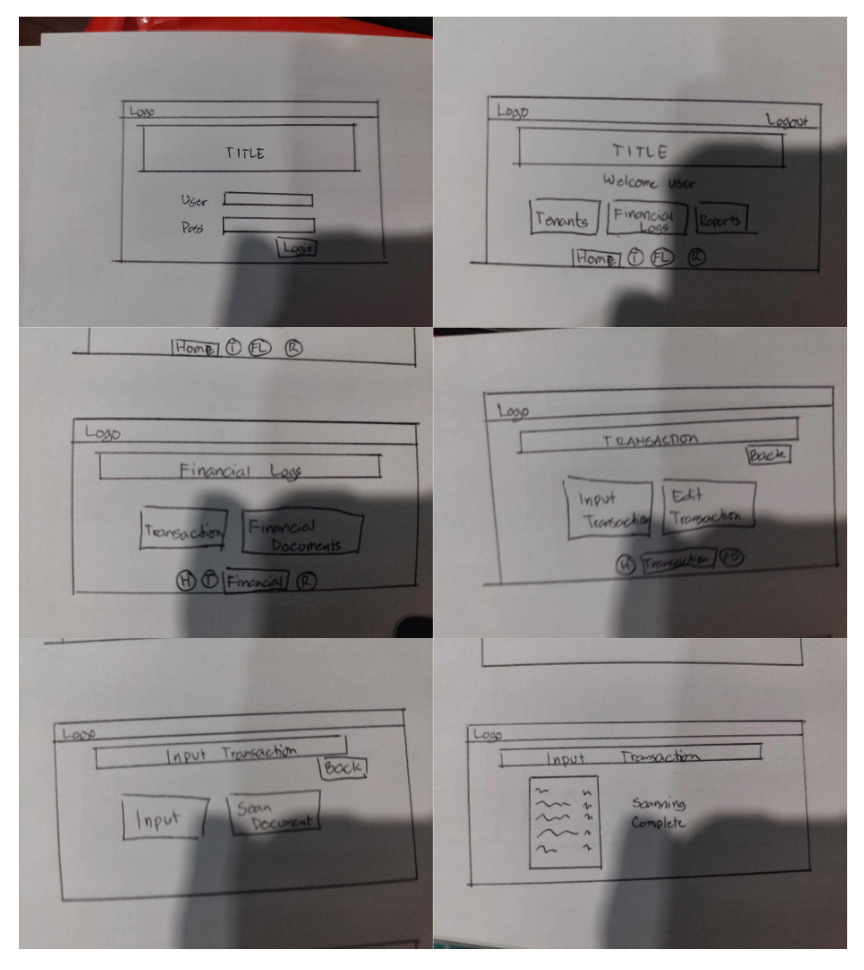 Logo
TITLE
User
Pass
Login
Logo
Logout
TITLE
Welcome User
Tenants
Financial
Logs
Reports
Home T FL R
Home T FL R
Logo
Financial Logs
Transaction
Financial
Documents
H T Financial R
Logo
TRANSACTION
Back
Input
Transaction
Edit
Transaction
H Transaction FD
Logo
Input Transaction
Back
Input
Scan
Document
Logo
Input Transaction
Scanning
Complete